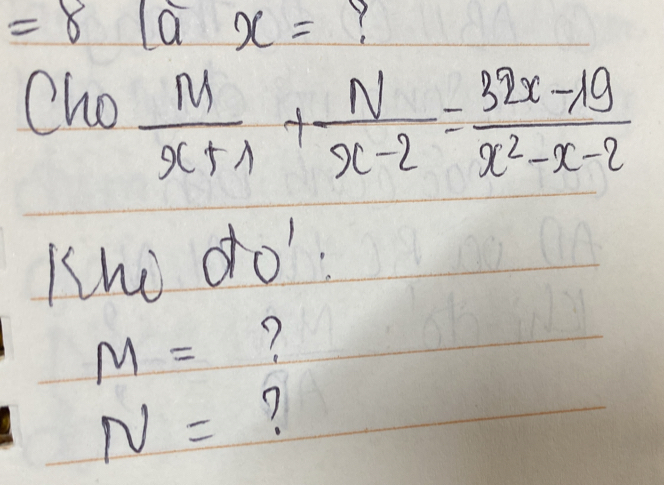 = 8 là x = ?
Cho M/(x+1) + N/(x-2) = (32x-19)/(x²-x-2)
Khi đó:
M = ?
N = ?